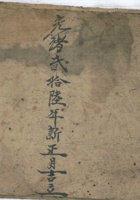 光緒貳拾陸年新正月吉立